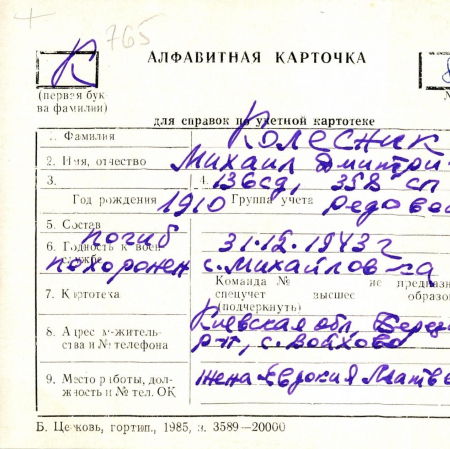 765
К
АЛФАВИТНАЯ КАРТОЧКА
(первая бук
ва фамилии)
для справок по учетной картотеке
1. Фамилия Колесник
2. Имя, отчество Михаил Дмитри
3. 4. 136сд, 358 сп
Год рождения 1910 Группа учета редово
5. Состав
погиб 31.12.1943г
6. Годность к воен.
службе
похоронен с. Михайлов-ка
7. Картотека Команда № не предназ
спецучет высшее образо
(подчеркнуть)
8. Адрес м-житель-
ства и № телефона
Киевская обл, Берез
р-н, с. Войково
9. Место работы, дол-
жность и № тел. ОК
жена Евдокия Матве
Б. Церковь, гортип., 1985, з. 3589—20000